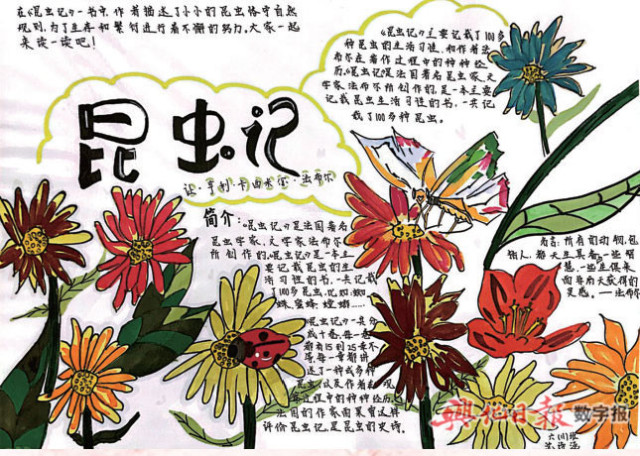 在《昆虫记》一书中,作者描述了小小的昆虫恪守自然
规则,为了生存和繁衍进行着不懈的努力,大家一起
来读一读吧!
《昆虫记》主要记载了100多
种昆虫的生活习性,和作者法
布尔在著作过程中的种种经
历。《昆虫记》是法国著名昆虫家、文
学家法布尔所创作的,是一本主要
记载昆虫生活习性的书,一共记
载了100多种昆虫。
昆虫记
让·亨利·卡西米尔·法布尔
简介:《昆虫记》是法国著名
昆虫学家、文学家法布尔
所创作的,《昆虫记》是一本主
要记载昆虫的生
活习性的书,一共记载
了100多种昆虫,比如:蜘
蛛、蜜蜂、螳螂……
昆虫记》一共分
为十卷,每一卷
都有15到25章不
等,每一章都讲
述了一种或多种
昆虫,以及作者在观
察过程中的种种经历,
法国的作家雨果曾这样
评价昆虫记是昆虫的史诗。
名言:所有的动物,包
括人,都天生具有一些智
慧,一些生俱来
而毋需天获得的
灵感。——法布尔
兴化日报 数字报